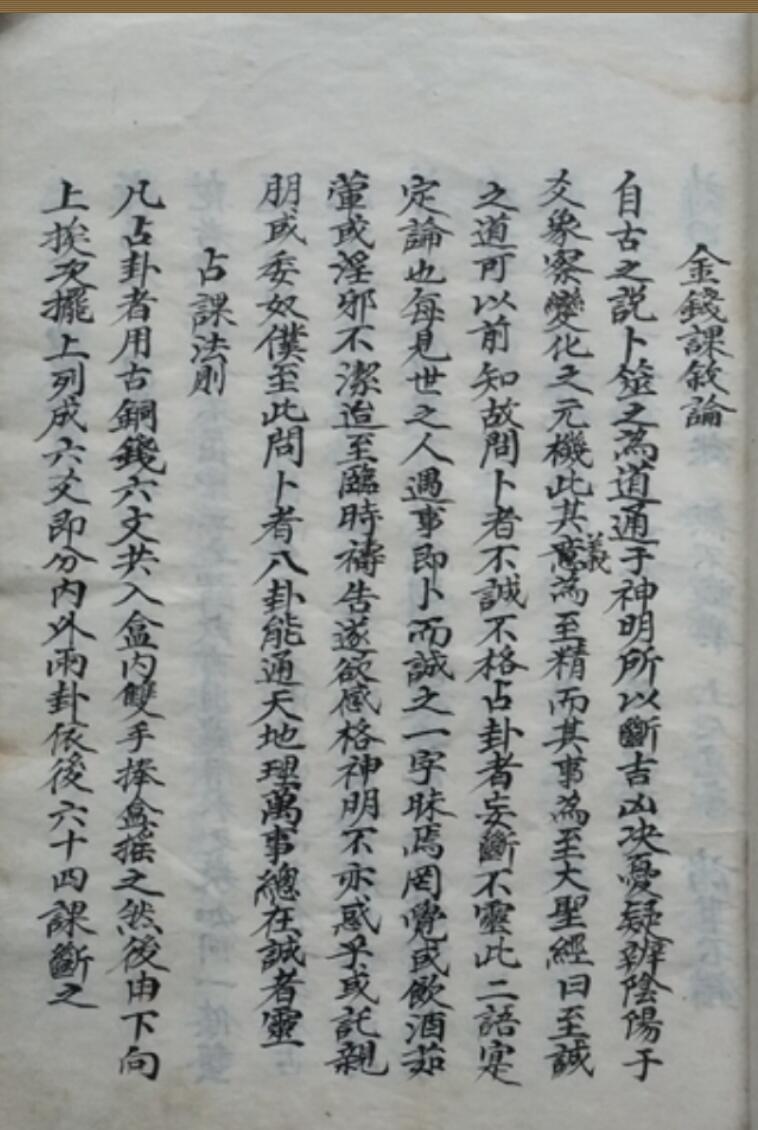 金錢課敘論
自古之説卜筮之為道通于神明所以斷吉凶决憂疑辧陰陽于
爻象察變化之元機此其意義為至精而其事為至大聖經曰至誠
之道可以前知故問卜者不誠不格占卦者妄斷不靈此二語寔
定論也每見世之人遇事即卜而誠之一字昧焉罔覺或飲酒茹
葷或淫邪不潔迨至臨時禱告遂欲感格神明不亦惑乎或託親
朋或委奴僕至此問卜者八卦能通天地理萬事總在誠者靈
占課法則
凡占卦者用古銅錢六文共入盒内雙手捧盒摇之然後由下向
上挨次擺上列成六爻即分内外兩卦依後六十四課斷之